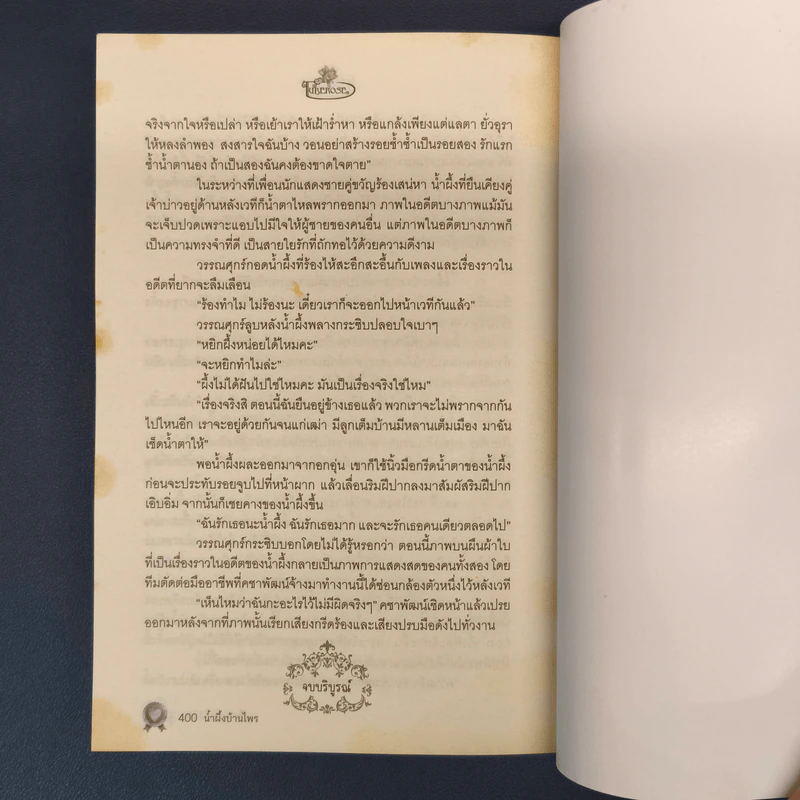 Tuberose
จริงจากใจหรือเปล่า หรือเย้าเราให้เฝ้าร่ำหา หรือแกล้งเพียงแต่แลตา ยั่วอุรา
ให้หลงลำพอง สงสารใจฉันบ้าง วอนอย่าสร้างรอยช้ำซ้ำเป็นรอยสอง รักแรก
ช้ำน้ำตานอง ถ้าเป็นสองฉันคงต้องขาดใจตาย"
ในระหว่างที่เพื่อนนักแสดงชายคู่ขวัญร้องเสน่หา น้ำผึ้งที่ยืนเคียงคู่
เจ้าบ่าวอยู่ด้านหลังเวทีก็น้ำตาไหลพรากออกมา ภาพในอดีตบางภาพแม้มัน
จะเจ็บปวดเพราะแอบไปมีใจให้ผู้ชายของคนอื่น แต่ภาพในอดีตบางภาพก็
เป็นความทรงจำที่ดี เป็นสายใยรักที่ถักทอไว้ด้วยความดีงาม
วรรณศุกร์กอดน้ำผึ้งที่ร้องไห้สะอึกสะอื้นกับเพลงและเรื่องราวใน
อดีตที่ยากจะลืมเลือน
"ร้องทำไม ไม่ร้องนะ เดี๋ยวเราก็จะออกไปหน้าเวทีกันแล้ว"
วรรณศุกร์ลูบหลังน้ำผึ้งพลางกระซิบปลอบใจเบาๆ
"หยิกผึ้งหน่อยได้ไหมคะ"
"จะหยิกทำไมล่ะ"
"ผึ้งไม่ได้ฝันไปใช่ไหมคะ มันเป็นเรื่องจริงใช่ไหม"
"เรื่องจริงสิ ตอนนี้ฉันยืนอยู่ข้างเธอแล้ว พวกเราจะไม่พรากจากกัน
ไปไหนอีก เราจะอยู่ด้วยกันจนแก่เฒ่า มีลูกเต็มบ้านมีหลานเต็มเมือง มาฉัน
เช็ดน้ำตาให้"
พอน้ำผึ้งผละออกมาจากอกอุ่น เขาก็ใช้นิ้วมือกรีดน้ำตาของน้ำผึ้ง
ก่อนจะประทับรอยจูบไปที่หน้าผาก แล้วเลื่อนริมฝีปากลงมาสัมผัสริมฝีปาก
เอิบอิ่ม จากนั้นก็เชยคางของน้ำผึ้งขึ้น
"ฉันรักเธอนะน้ำผึ้ง ฉันรักเธอมาก และจะรักเธอคนเดียวตลอดไป"
วรรณศุกร์กระซิบบอกโดยไม่ได้รู้หรอกว่า ตอนนี้ภาพบนผืนผ้าใบ
ที่เป็นเรื่องราวในอดีตของน้ำผึ้งกลายเป็นภาพการแสดงสดของคนทั้งสอง โดย
ทีมตัดต่อมืออาชีพที่คชาพัฒน์จ้างมาทำงานนี้ได้ซ่อนกล้องตัวหนึ่งไว้หลังเวที
"เห็นไหมว่าฉันกะอะไรไว้ไม่มีผิดจริงๆ" คชาพัฒน์เชิดหน้าแล้วเปรย
ออกมาหลังจากที่ภาพนั้นเรียกเสียงกรีดร้องและเสียงปรบมือดังไปทั่วงาน
จบบริบูรณ์
400 น้ำผึ้งบ้านไพร